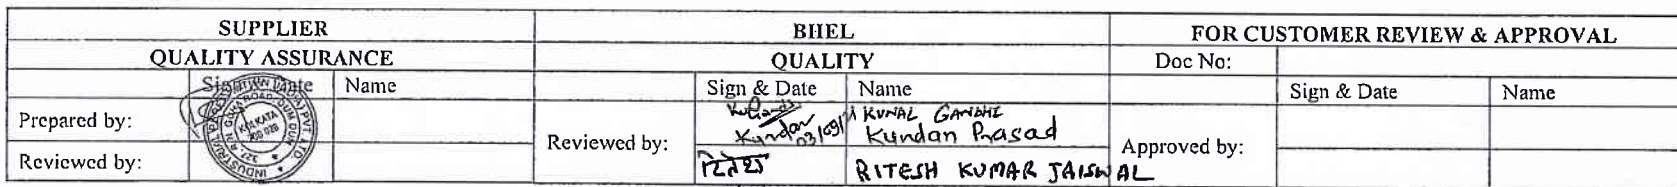 SUPPLIER BHEL FOR CUSTOMER REVIEW & APPROVAL
QUALITY ASSURANCE QUALITY Doc No:
Sign & Date Name Sign & Date Name Sign & Date Name
Prepared by: Reviewed by: Kundan 03/09/ KUNAL GANDHI
Kundan Prasad
Approved by:
Reviewed by: रितेश RITESH KUMAR JAISWAL
KOLKATA
700 028